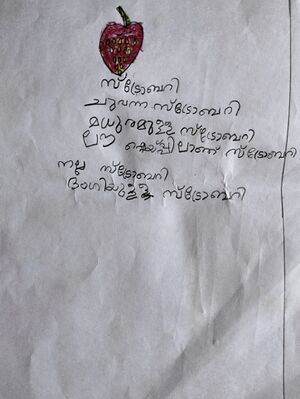 സ്ട്രോബറി
ചുവന്ന സ്ട്രോബറി
മധുരമുള്ള സ്ട്രോബറി
ലൗ ഷെയ്പ്പിലാണ് സ്ട്രോബറി
നല്ല സ്ട്രോബറി
ഭംഗിയുള്ള സ്ട്രോബറി